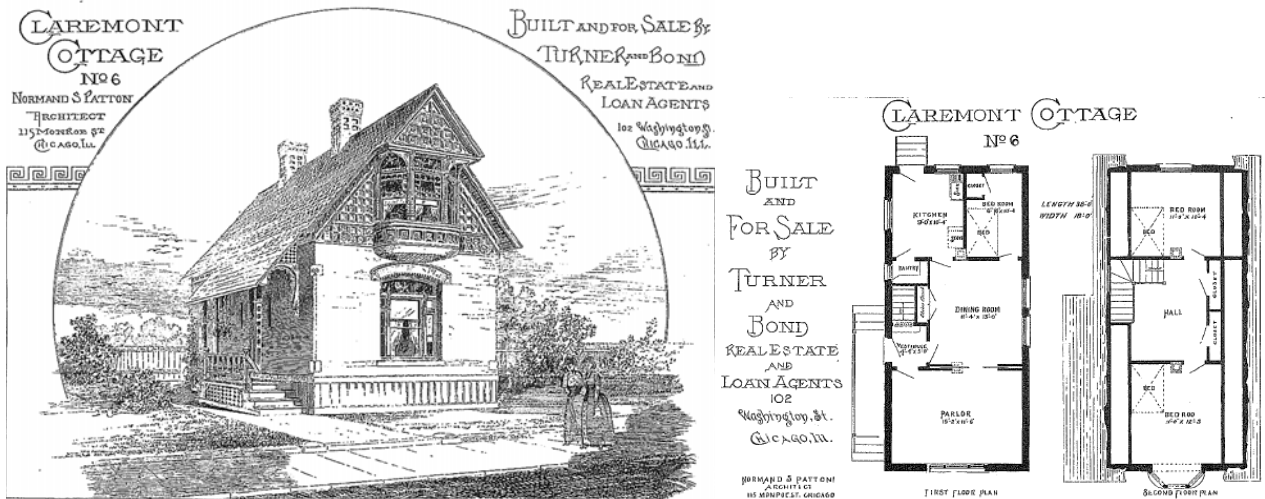 CLAREMONT
COTTAGE
No 6
NORMAND S PATTON
ARCHITECT
115 MONROE ST
CHICAGO, ILL
BUILT AND FOR SALE BY
TURNER AND BOND
REAL ESTATE AND
LOAN AGENTS
102 Washington St.
CHICAGO, ILL.
CLAREMONT COTTAGE
No 6
BUILT
AND
FOR SALE
BY
TURNER
AND
BOND
REAL ESTATE
AND
LOAN AGENTS
102
Washington, St.
CHICAGO, ILL.
NORMAND S PATTON
ARCHITECT
115 MONROE ST. CHICAGO
KITCHEN
CLOSET
BED ROOM
BED
PANTRY
DINING ROOM
VESTIBULE
PARLOR
FIRST FLOOR PLAN
LENGTH
WIDTH
BED ROOM
BED
HALL
CLOSET
CLOSET
BED
BED ROO
SECOND FLOOR PLAN